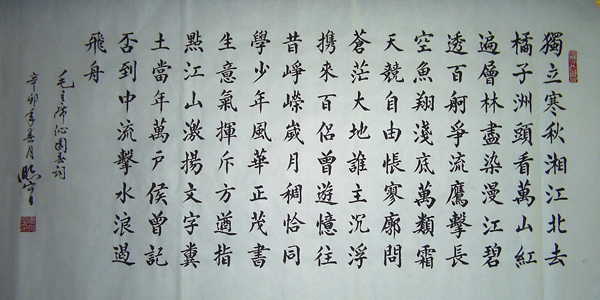 獨立寒秋湘江北去
橘子洲頭看萬山紅
遍層林盡染漫江碧
透百舸爭流鷹擊長
空魚翔淺底萬類霜
天競自由悵寥廓問
蒼茫大地誰主沉浮
携來百侣曾遊憶往
昔崢嶸歲月稠恰同
學少年風華正茂書
生意氣揮斥方遒指
點江山激揚文字糞
土當年萬戶侯曾記
否到中流擊水浪遏
飛舟
毛主席沁園春词
辛卯年春月